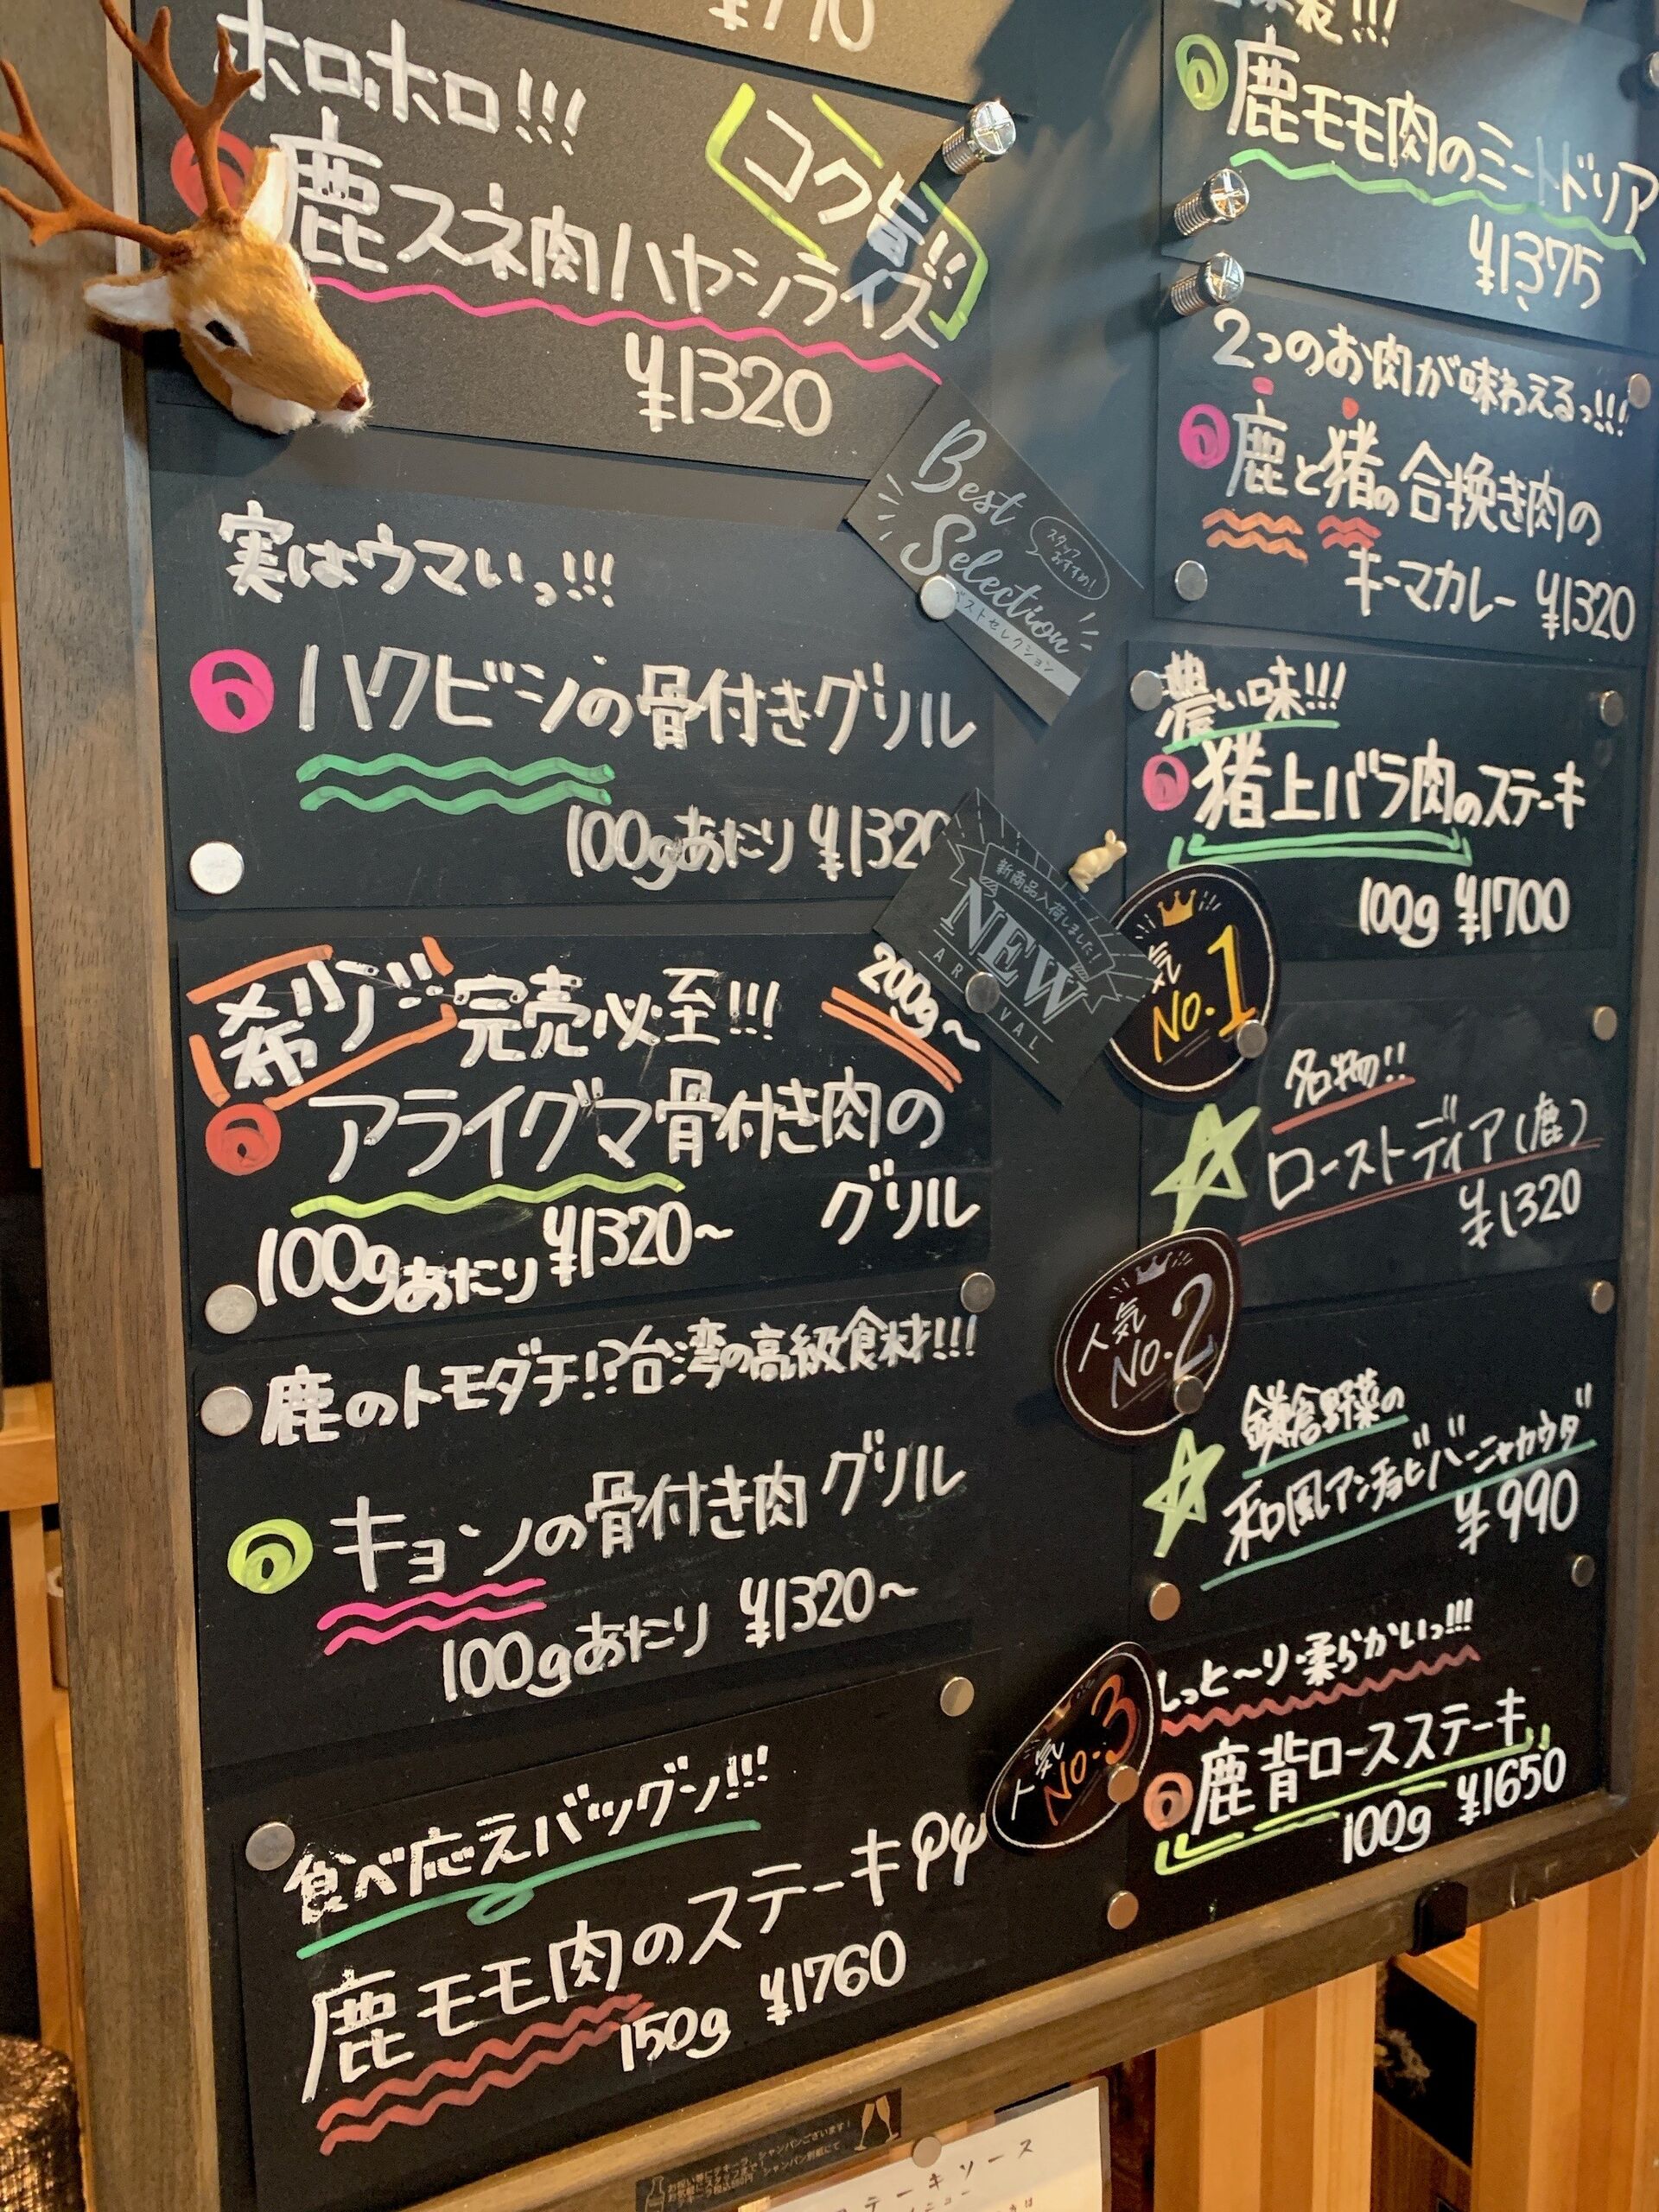 ¥770
ホロホロ!!!
コク旨!!
鹿スネ肉ハヤシライス
¥1320
Best
Selection
スタッフ
おすすめ!
ベストセレクション
実はウマいっ!!!
ハクビシンの骨付きグリル
100gあたり ¥1320
新商品入荷しました!
NEW
ARRIVAL
希少ジビ 完売必至!!!
200g〜
アライグマ骨付き肉の
グリル
100gあたり ¥1320〜
鹿のトモダチ!?台湾の高級食材!!!
キョンの骨付き肉グリル
100gあたり ¥1320〜
食べ応えバツグン!!!
鹿モモ肉のステーキ
150g ¥1760
鹿モモ肉のミートドリア
¥1375
2つのお肉が味わえるっ!!!
鹿と猪の合挽き肉の
キーマカレー ¥1320
濃い味!!!
猪上バラ肉のステーキ
100g ¥1700
気
No.1
名物!!
ローストディア(鹿)
¥1320
人気
No.2
鎌倉野菜の
和風アンチョビバーニャカウダ
¥990
人気
No.3
しっと〜り・柔らかいっ!!!
鹿背ロースステーキ
100g ¥1650
シャンパンございます!
シャンパン別紙にて
ステーキソース